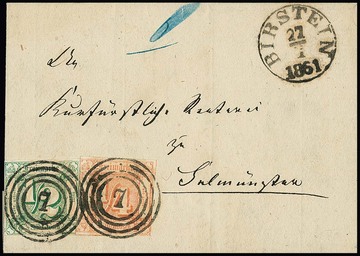 BIRSTEIN
27
I
1861
An
Kurfürstliche Renterei
zu
Salmünster
1/2
1/4
7
7